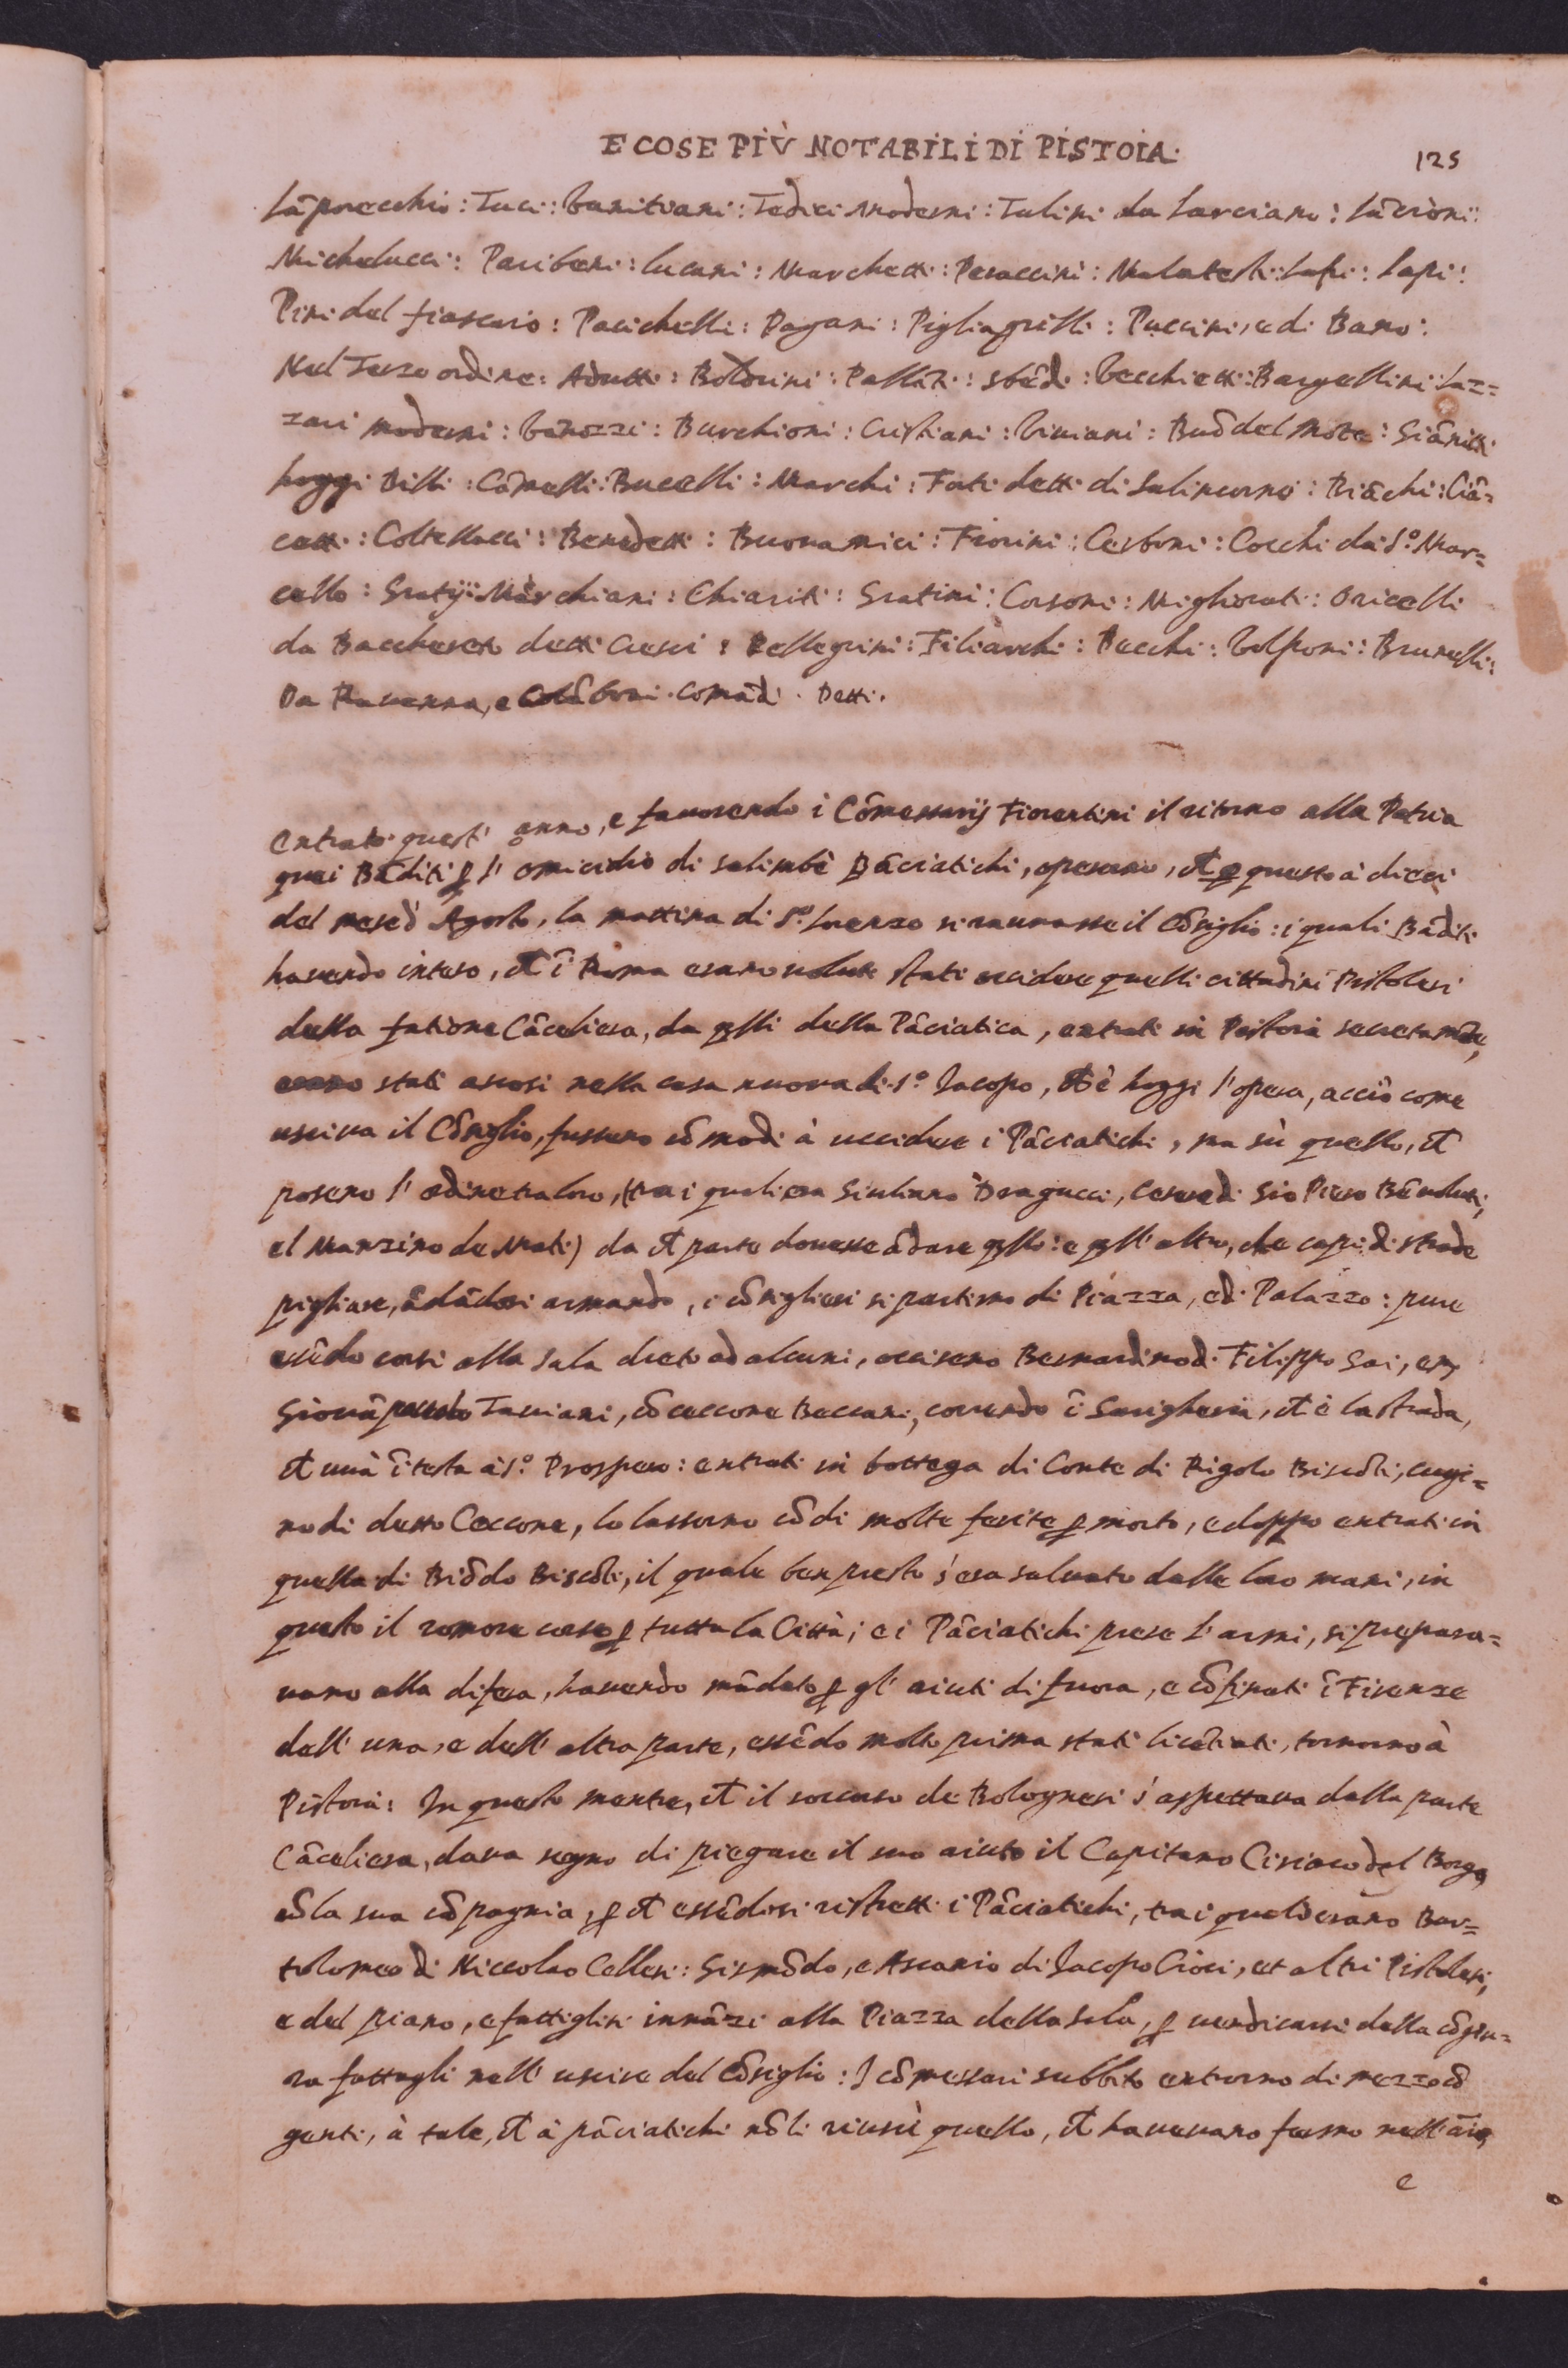 E COSE PIÙ NOTABILI DI PISTOIA.
125
Lãporecchio: Tuci: Tedici Moderni: Tulini da Larciano:
Michelucci: Pariberi: Lucani: Marchetti: Peraccini: Malatesti: Lapi:
Pini del fiascaio: Pacichelli: Pagani: Pigliagrilli: Puccini, e di Bano:
Nel Terzo ordine: Aduti: Boldrini: Pallãti: Sbẽdi: Vecchietti: Bargellini: Laz=
zari moderni: Burchioni: Cristiani: Viviani: del Mõte: Giãnitti
hoggi Billi: Cãmelli: Bucelli: Marchi: Forti detti di Salincorno: Biãchi: Ciã=
cetti: Coltellacci: Benedetti: Buonamici: Fiorini: Cerboni: Cocchi da S.º Mar=
cello: Gratij: Marchiani: Chiariti: Gratini: Corsoni: Migliorati: Oricelli
da Bacchereto detti Cresci: Pellegrini: Filiarchi: Pucchi: Volponi: Brunelli:
Da Ravenna, e Colõboni. Comãdi. Detti.
Entrato quest' anno, e favorendo i Cõmessarij Fiorentini il ritorno alla Patria
quei Bãditi ꝑ l' omicidio di Salimbẽ Pãciatichi, operano, ch ꝑ questo à dieci
del mese d' Agosto, la mattina di S.º Lorenzo si raunasse il Cõsiglio: i quali Bãditi
havendo inteso, ch ĩ Roma erano volute stati uccidere quelli cittadini Pistolesi
della fatione Cãceliera, da qlli della Pãciatica, entrati in Pistoia secretamẽte,
erano stati ascosi nella casa nuova di S.º Jacopo, ch è hoggi l' opera, acciò come
usciva il Cõsiglio, fussero cõmodi à uccidere i Pãciatichi, ma sù quello, ch
posero l' ordine tra loro, (tra i quali era Giuliano Dragucci, Cesare di Gio Piero Bẽvoluti,
el Manzino de Mati) da ch parte dovesse ãdare qllo: e qll' altro, che capi di strade
pigliare, ãdãdosi armando, i cõsiglieri si partirno di Piazza, e di Palazzo: pure
essẽdo corsi alla Sala dreto ad alcuni, occisero Bernardino di Filippo Gai, e
Giovã Taviani, cõ Ceccone Beccani, correndo ĩ, ch è la strada,
ch uuà ĩ testa à S.º Prospero: entrati in bottega di Conte di Rigolo Biscõti, cugi=
no di detto Ceccone, lo lassorno cõ di molte ferite ꝑ morto, e doppo entrati in
quella di Biõdo Biscõti, il quale ben presto s' era salvato dalle loro mani, in
questo il romore corse ꝑ tutta la Città; e i Pãciatichi prese l' armi, si prepara=
vano alla difesa, havendo mãdato ꝑ gl' aiuti di fuora, e cõfinati ĩ Firenze
dall' una, e dall' altra parte, essẽdo molto prima stati licẽtiati, tornorno à
Pistoia: In questo mentre, ch il soccorso de Bolognesi s' aspettava dalla parte
Cãceliera, dava segno di piegare il suo aiuto il Capitano Ciriaco del Borgo,
cõ la sua cõpagnia, ꝑ ch essẽdosi ristretti i Pãciatichi, tra i quali erano Bar=
tolomeo di Niccolao Cellesi: Gismõdo, e Ascanio di Jacopo Cioci, et altri Pistolesi,
e del piano, e fattiglisi innãzi alla Piazza della Sala, ꝑ vendicarsi della cõgiu=
ra fattagli nell' uscire del Cõsiglio: I cõmessari subbito entrorno di mezzo cõ
genti, à tale, ch à pãciatichi nõ li riuscì quello, ch havevano fermo nell' aĩo,
e